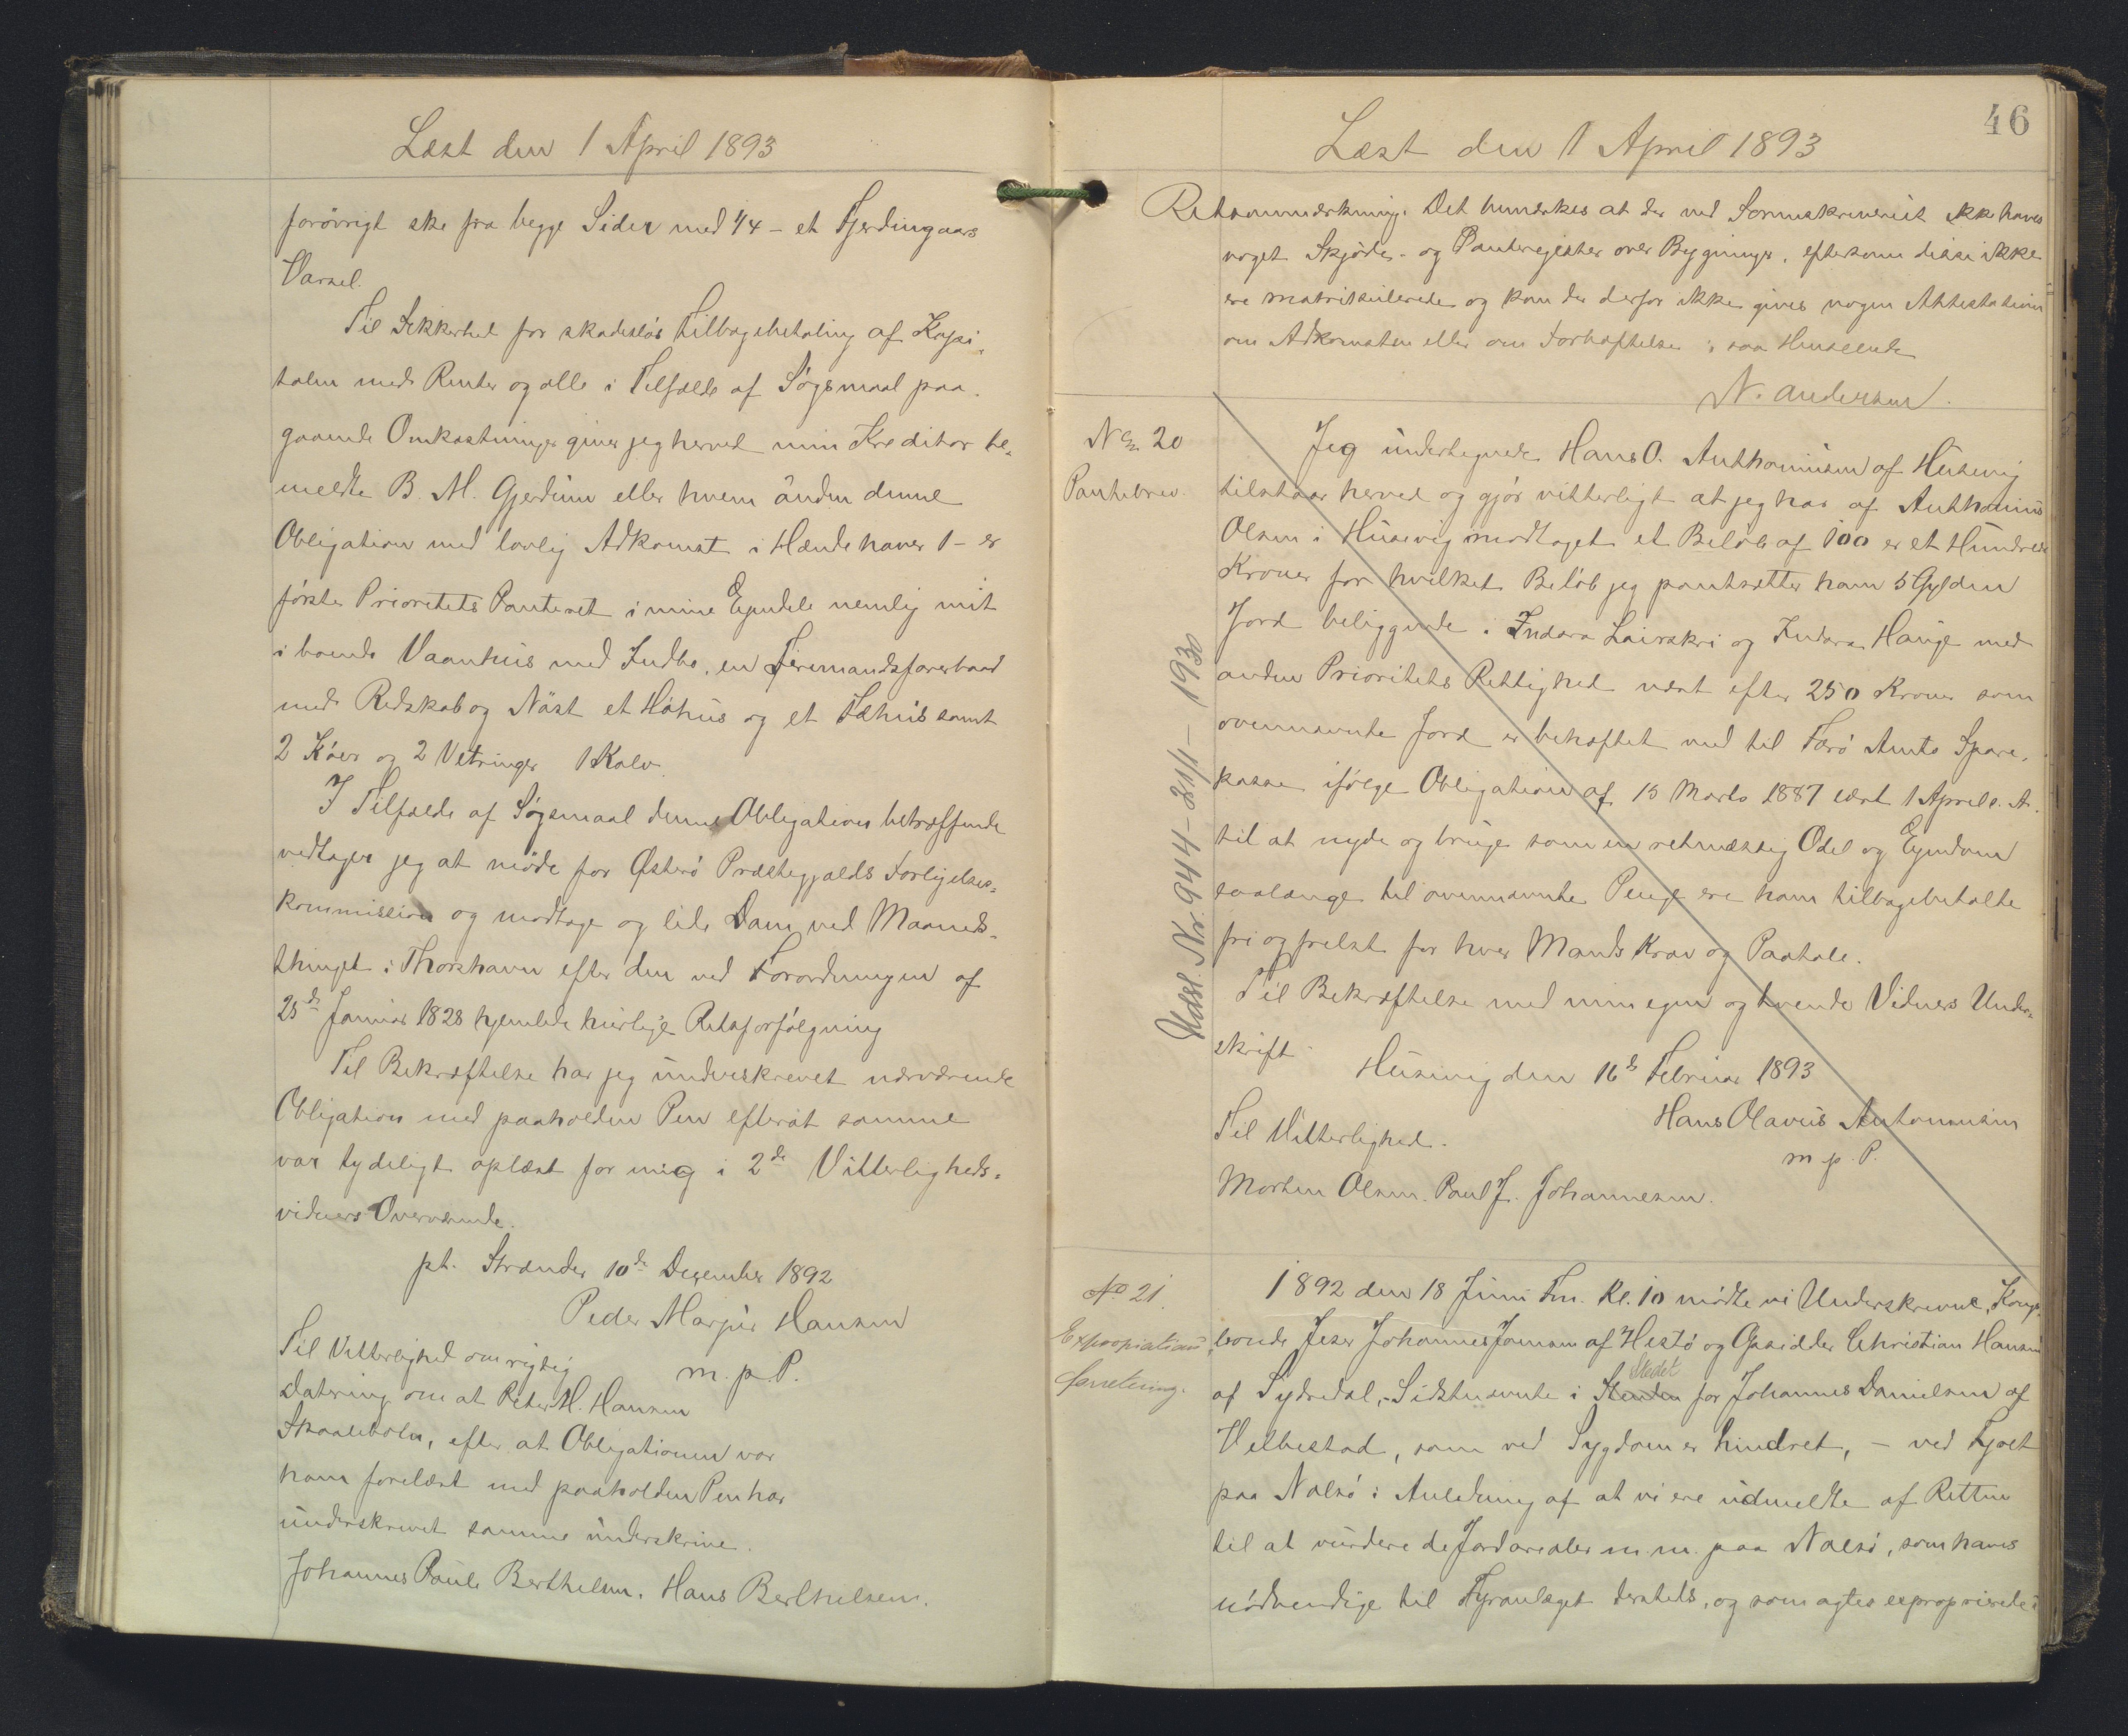 Læst den 1 April 1893
forövrigt ske fra begge Sider med 1/4 - et Fjerdingaars
Varsel.
Til Sikkerhed for skadeslös Tilbagebetaling af Kapi-
talen med Renter og alle i Tilfælde af Sögsmaal paa-
gaaende Omkostninger giver jeg herved min Kreditor be-
meldte B. M. Gjerdum eller hvem anden denne
Obligation med lovlig Adkomst i Hænde haver 1 - er
förste Prioritets Panteret i mine Ejendele nemlig mit
i boende Vaanhus med Indbo, en Firemandsfarerbaad
med Redskab og Nöst et Höhus og et Fæhus samt
2 Köer og 2 Vetringer 1 Kalv
I Tilfælde af Sögsmaal denne Obligation betræffende
vedtager jeg at möde for Østerö Præstegjælds Forligelses-
kommission og modtage og lide Dom ved Maaneds-
thinget i Thorshavn efter den ved Forordningen af
25de Januar 1828 hjemlede hurtige Retsforfölgning
Til Bekræftelse har jeg underskrevet nærværende
Obligation med paaholden Pen efterat samme
var tydeligt oplæst for mig i 2de Vitterligheds-
vidners Overværende.
pt. Strænder 10de Dezember 1892
Peder Marjus Hansen
m. p. P.
Til Vitterlighed om rigtig
datering om at Peter M. Hansen
Skaalebotn, efter at Obligationen var
ham forelæst med paaholden Pen har
underskrevet samme underskrive.
Johannes Paule Berthelsen. Hans Berthelsen.
46
Læst den 1 April 1893
Retsanmærkning. Det bemærkes at der ved Sorenskriveriet ikke haves
noget Skjöde- og Panteregister over Bygninger, eftersom disse ikke
ere matrikulerede og kan der derfor ikke gives nogen Attestation
om Adkomsten eller om Forhæftelse i saa Henseende
N. Andersen.
No 20
Pantebrev.
Jeg undertegnede Hans O. Anthoniusen af Husevig
tilstaar herved og gjör vitterligt at jeg har af Anthonius
Olsen i Husevig modtaget et Belöb af 100 er et Hundrede
Kroner for hvilket Belöb jeg pantsætter ham 5 Gylden
Jord beliggende i Indara Lairskri og Indara Hauje med
anden Prioritets Rettighed næst efter 250 Kroner som
ovennævnte Jord er behæftet med til Færö Amts Spare-
kasse ifölge Obligation af 15 Marts 1887 læst 1 April s. A.
til at nyde og bruge som en retmæssig Odel og Ejendom
saalænge til ovennævnte Penge ere ham tilbagebetalte
fri og frelst for hver Mands Krav og Paatale.
Til Bekræftelse med min egen og tvende Vidners Under-
skrift
Husevig den 16de Februar 1893
Hans Olavus Antoniusen
m. p. P.
Til Vitterlighed.
Morten Olsen. Paul J. Johannesen.
Udsl. Nr. 944 - 31/1 - 1930
No 21.
Expropriations
forretning.
1892 den 18 Juni Fm. Kl. 10 mödte vi Underskrevne, Kongs-
bonde Jeser Johannes Joensen af Hestö og Gaardfæster Christian Hansen
af Sydredal, - Sidstnævnte i Stedet for Johannes Danielsen af
Velbestad, som ved Sygdom er hindret, - ved Fyret
paa Nolsö i Anledning af at vi ere udmeldte af Retten
til at vurdere de Jordarealer m. m. paa Nolsö, som haves
nödvendige til Fyranlæget dersteds, og som agtes exproprierede i